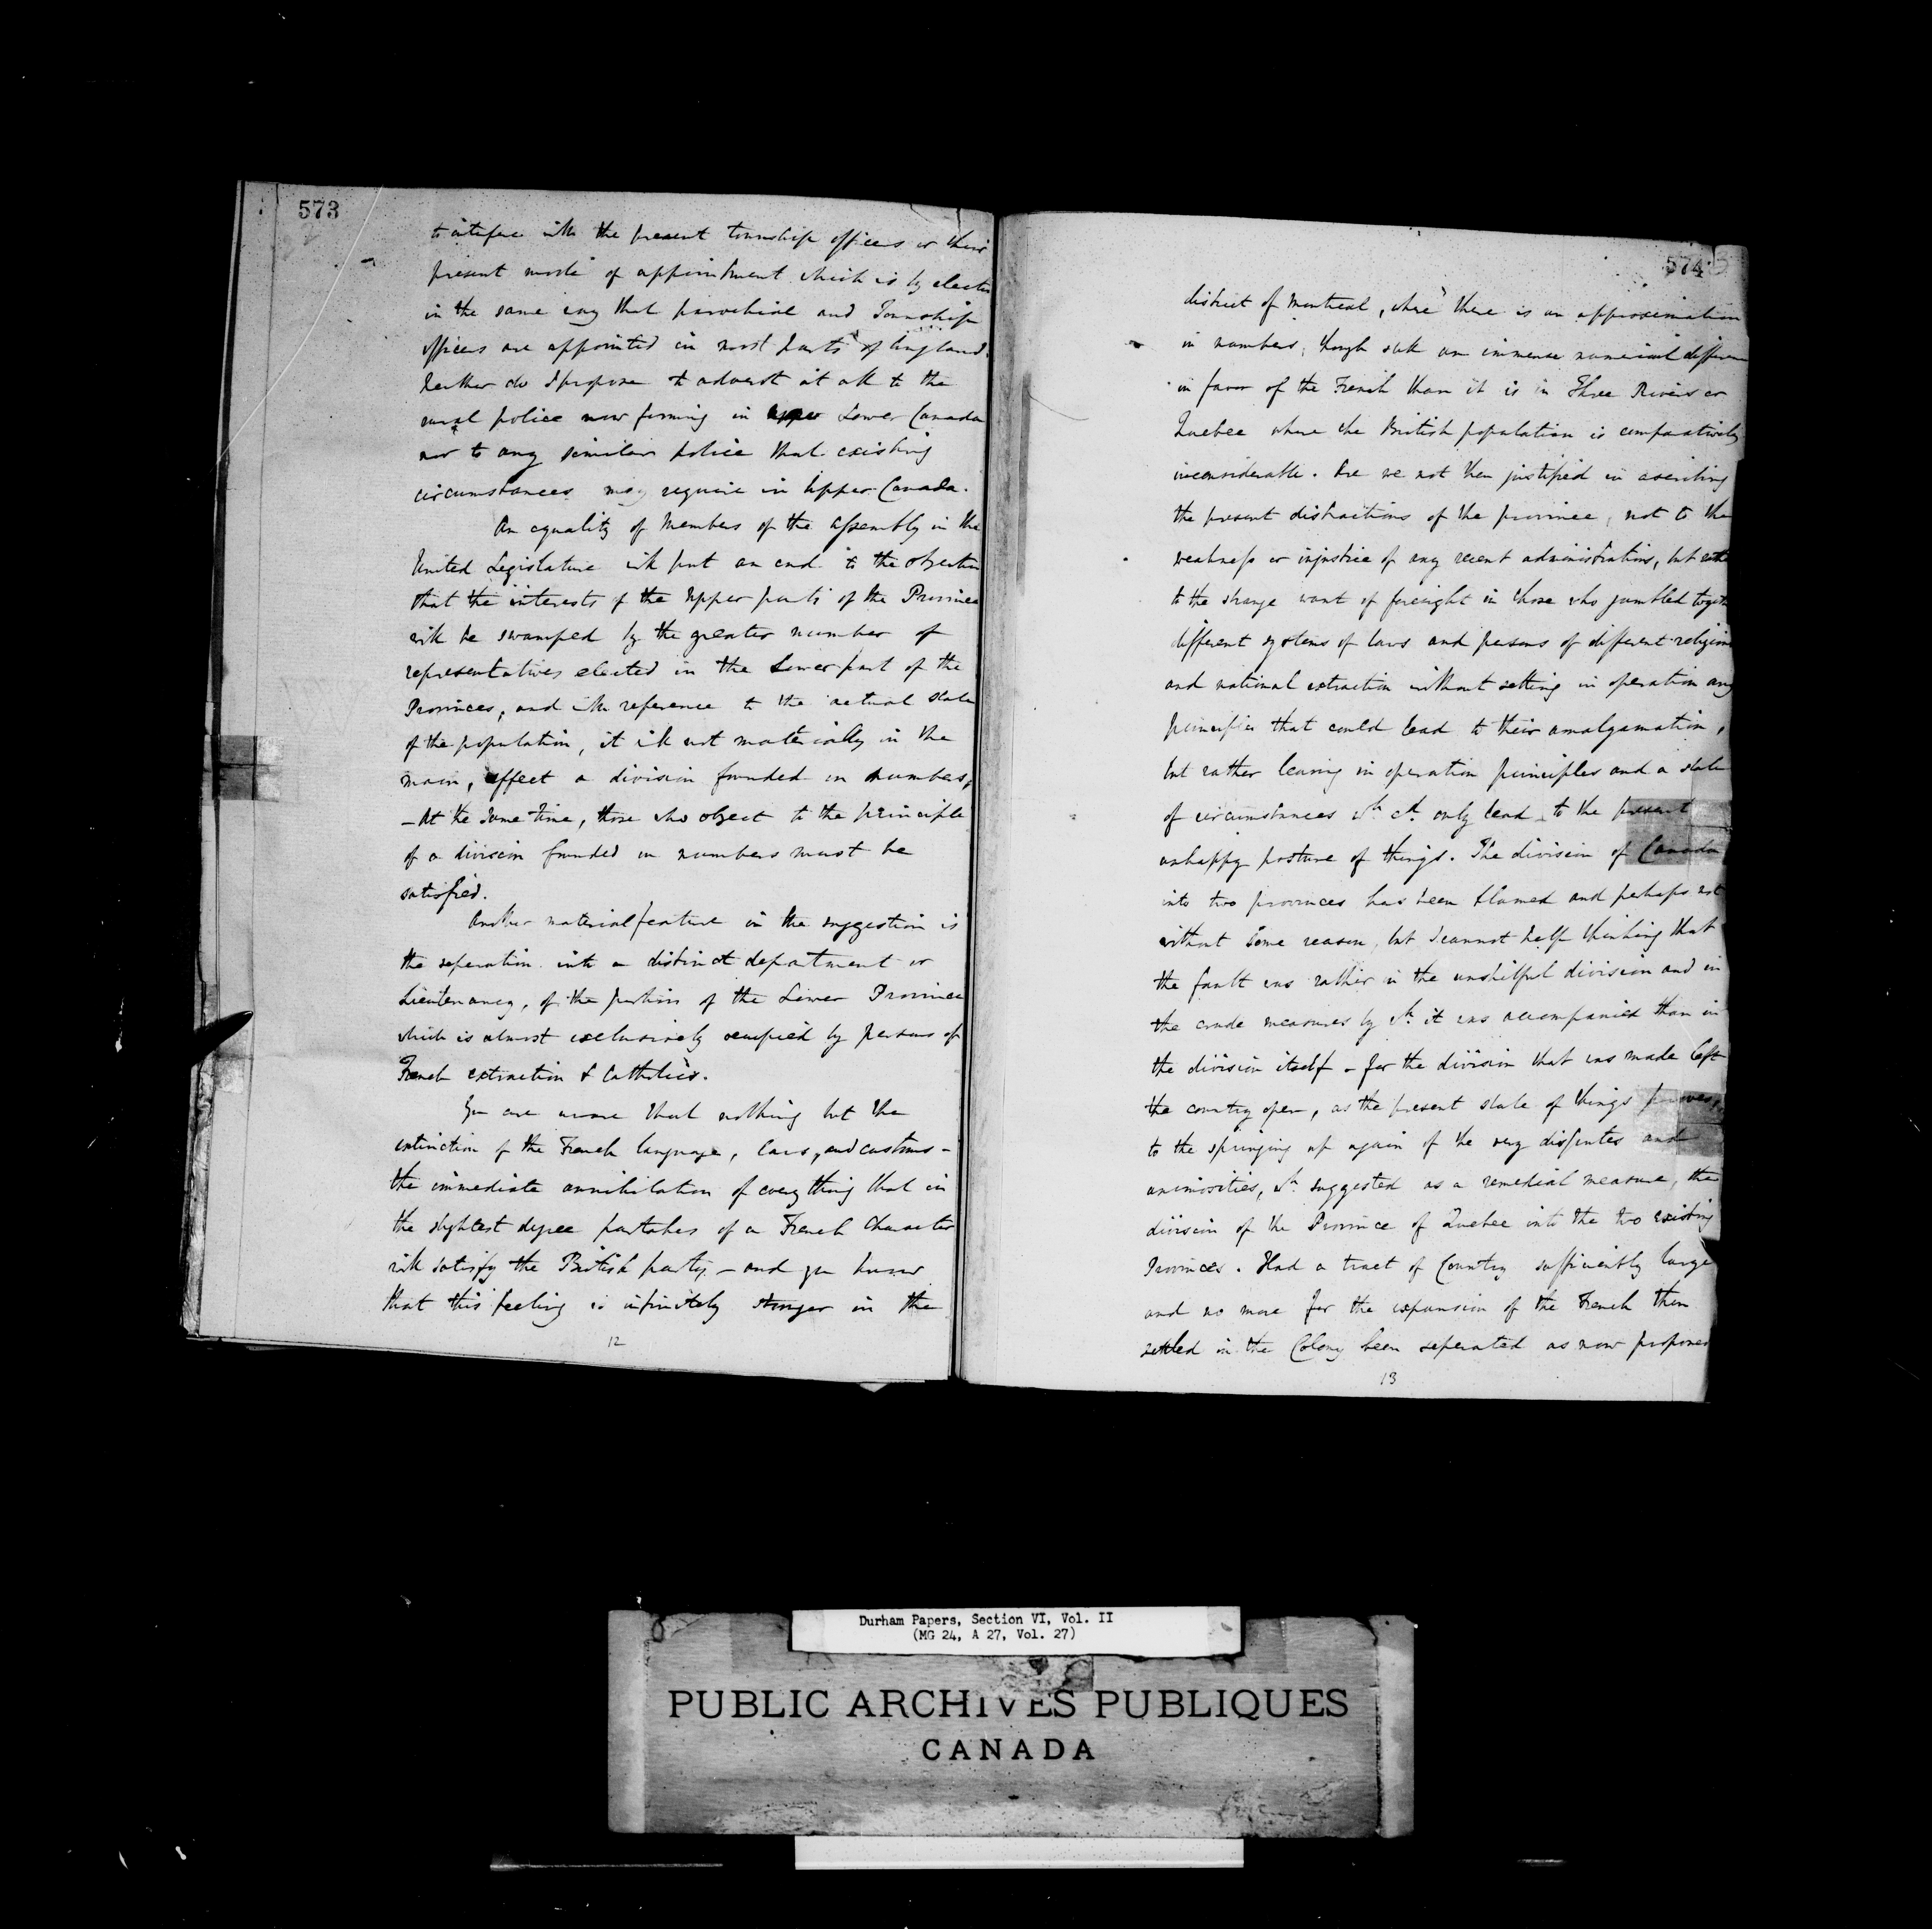 573
to interfere with the present township officers or their
present mode of appointment which is by election
in the same way that parochial and Township
officers are appointed in most parts of England.
Neither do I propose to advert at all to the
rural police now forming in Lower Canada
nor to any similar police that existing
circumstances may require in Upper Canada.
An equality of Members of the Assembly in the
United Legislature will put an end to the objection
that the interests of the Upper parts of the Province
will be swamped by the greater number of
representatives elected in the Lower part of the
Provinces, and with reference to the actual state
of the population, it will not materially in the
main, affect a division founded on numbers,
- At the same time, those who object to the principle
of a division founded on numbers must be
satisfied.
Another material feature in the suggestion is
the seperation into a distinct department or
Lieutenancy, of the portion of the Lower Province
which is almost exclusively occupied by persons of
French extraction & Catholics.
You are aware that nothing but the
extinction of the French language, laws, and customs -
the immediate annihilation of every thing that in
the slightest degree partakes of a French character
will satisfy the British party - and you know
that this feeling is infinitely stronger in the
12
574
district of Montreal, where there is an approximation
in numbers, though still an immense numerical difference
in favor of the French than it is in Three Rivers or
Quebec where the British population is comparatively
inconsiderable. Are we not then justified in ascribing
the present distractions of the province, not to the
weakness or injustice of any recent administrations, but rather
to the strange want of foresight in those who jumbled together
different systems of laws and persons of different religions
and national extraction without setting in operation any
principles that could lead to their amalgamation,
but rather leaving in operation principles and a state
of circumstances wh. cd. only lead to the present
unhappy posture of things. The division of Canada
into two provinces has been blamed and perhaps not
without some reason, but I cannot help thinking that
the fault was rather in the unskilful division and in
the crude measures by wh. it was accompanied than in
the division itself - for the division that was made left
the country open, as the present state of things proves,
to the springing up again of the very disputes and
animosities, wh. suggested as a remedial measure, the
division of the Province of Quebec into the two existing
Provinces. Had a tract of Country sufficiently large
and no more for the expansion of the French then
settled in the Colony been seperated as now proposed
13
Durham Papers, Section VI, Vol. II
(MG 24, A 27, Vol. 27)
PUBLIC ARCHIVES PUBLIQUES
CANADA